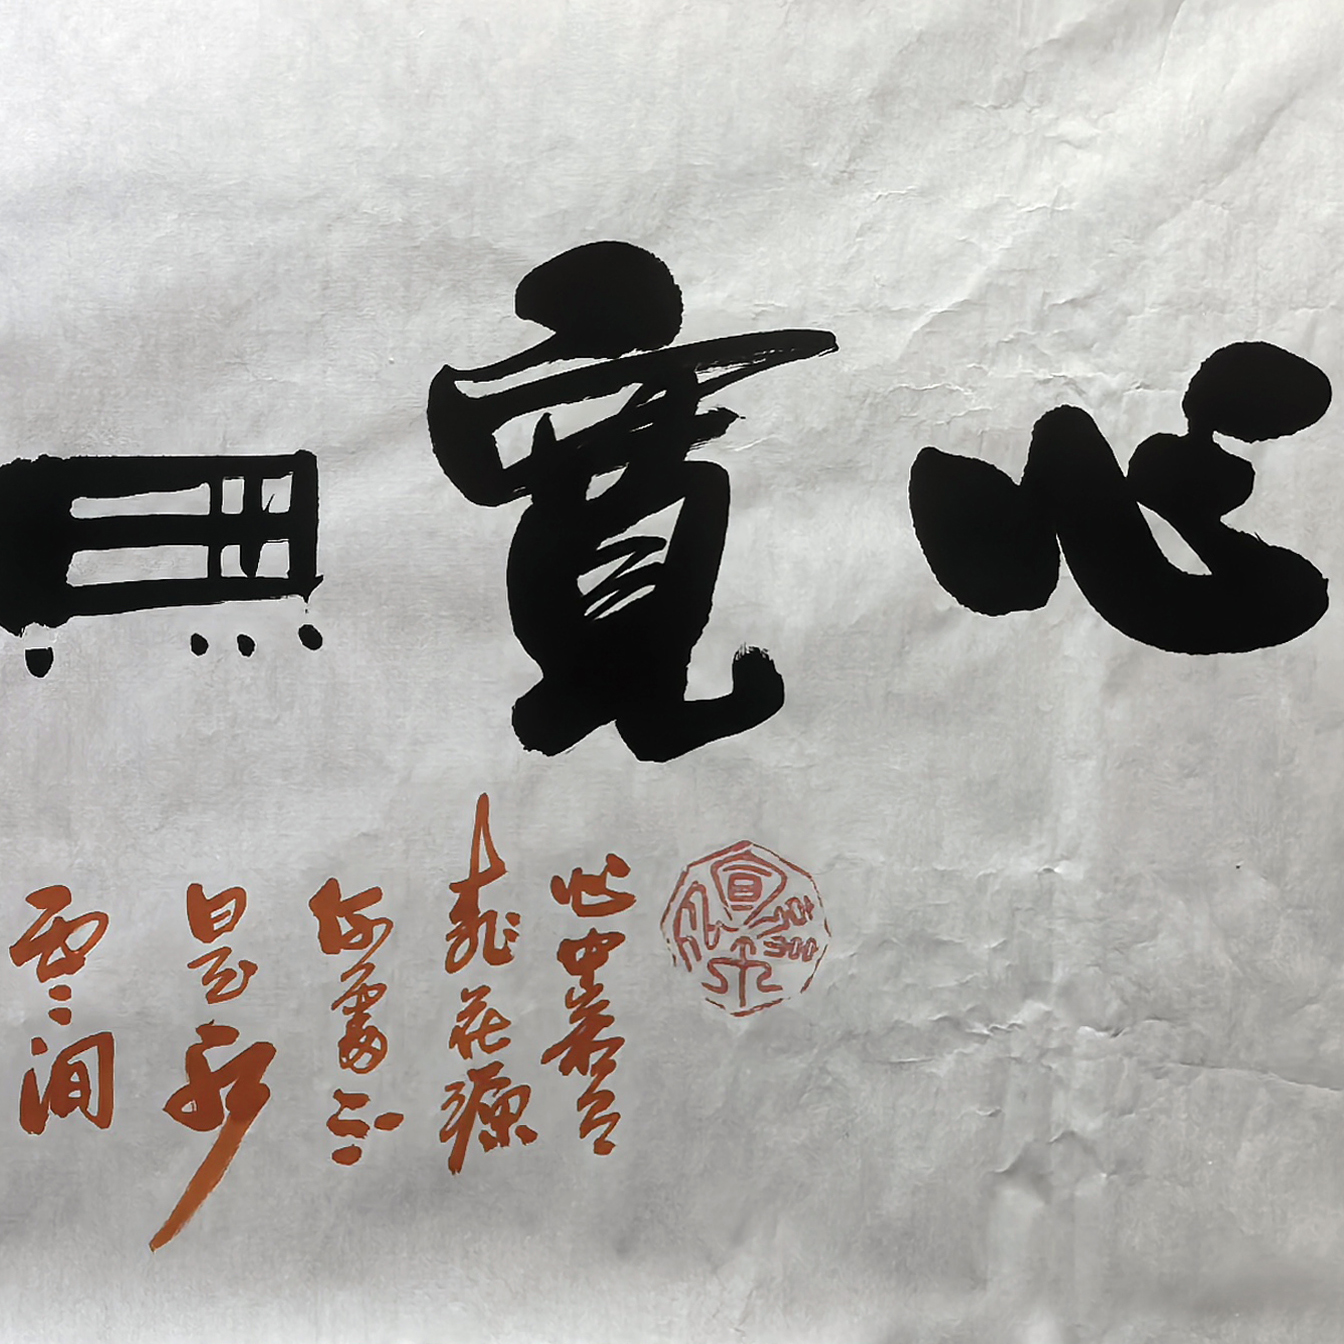 心寬
心中若有
桃花源
何處不
是水
雲間